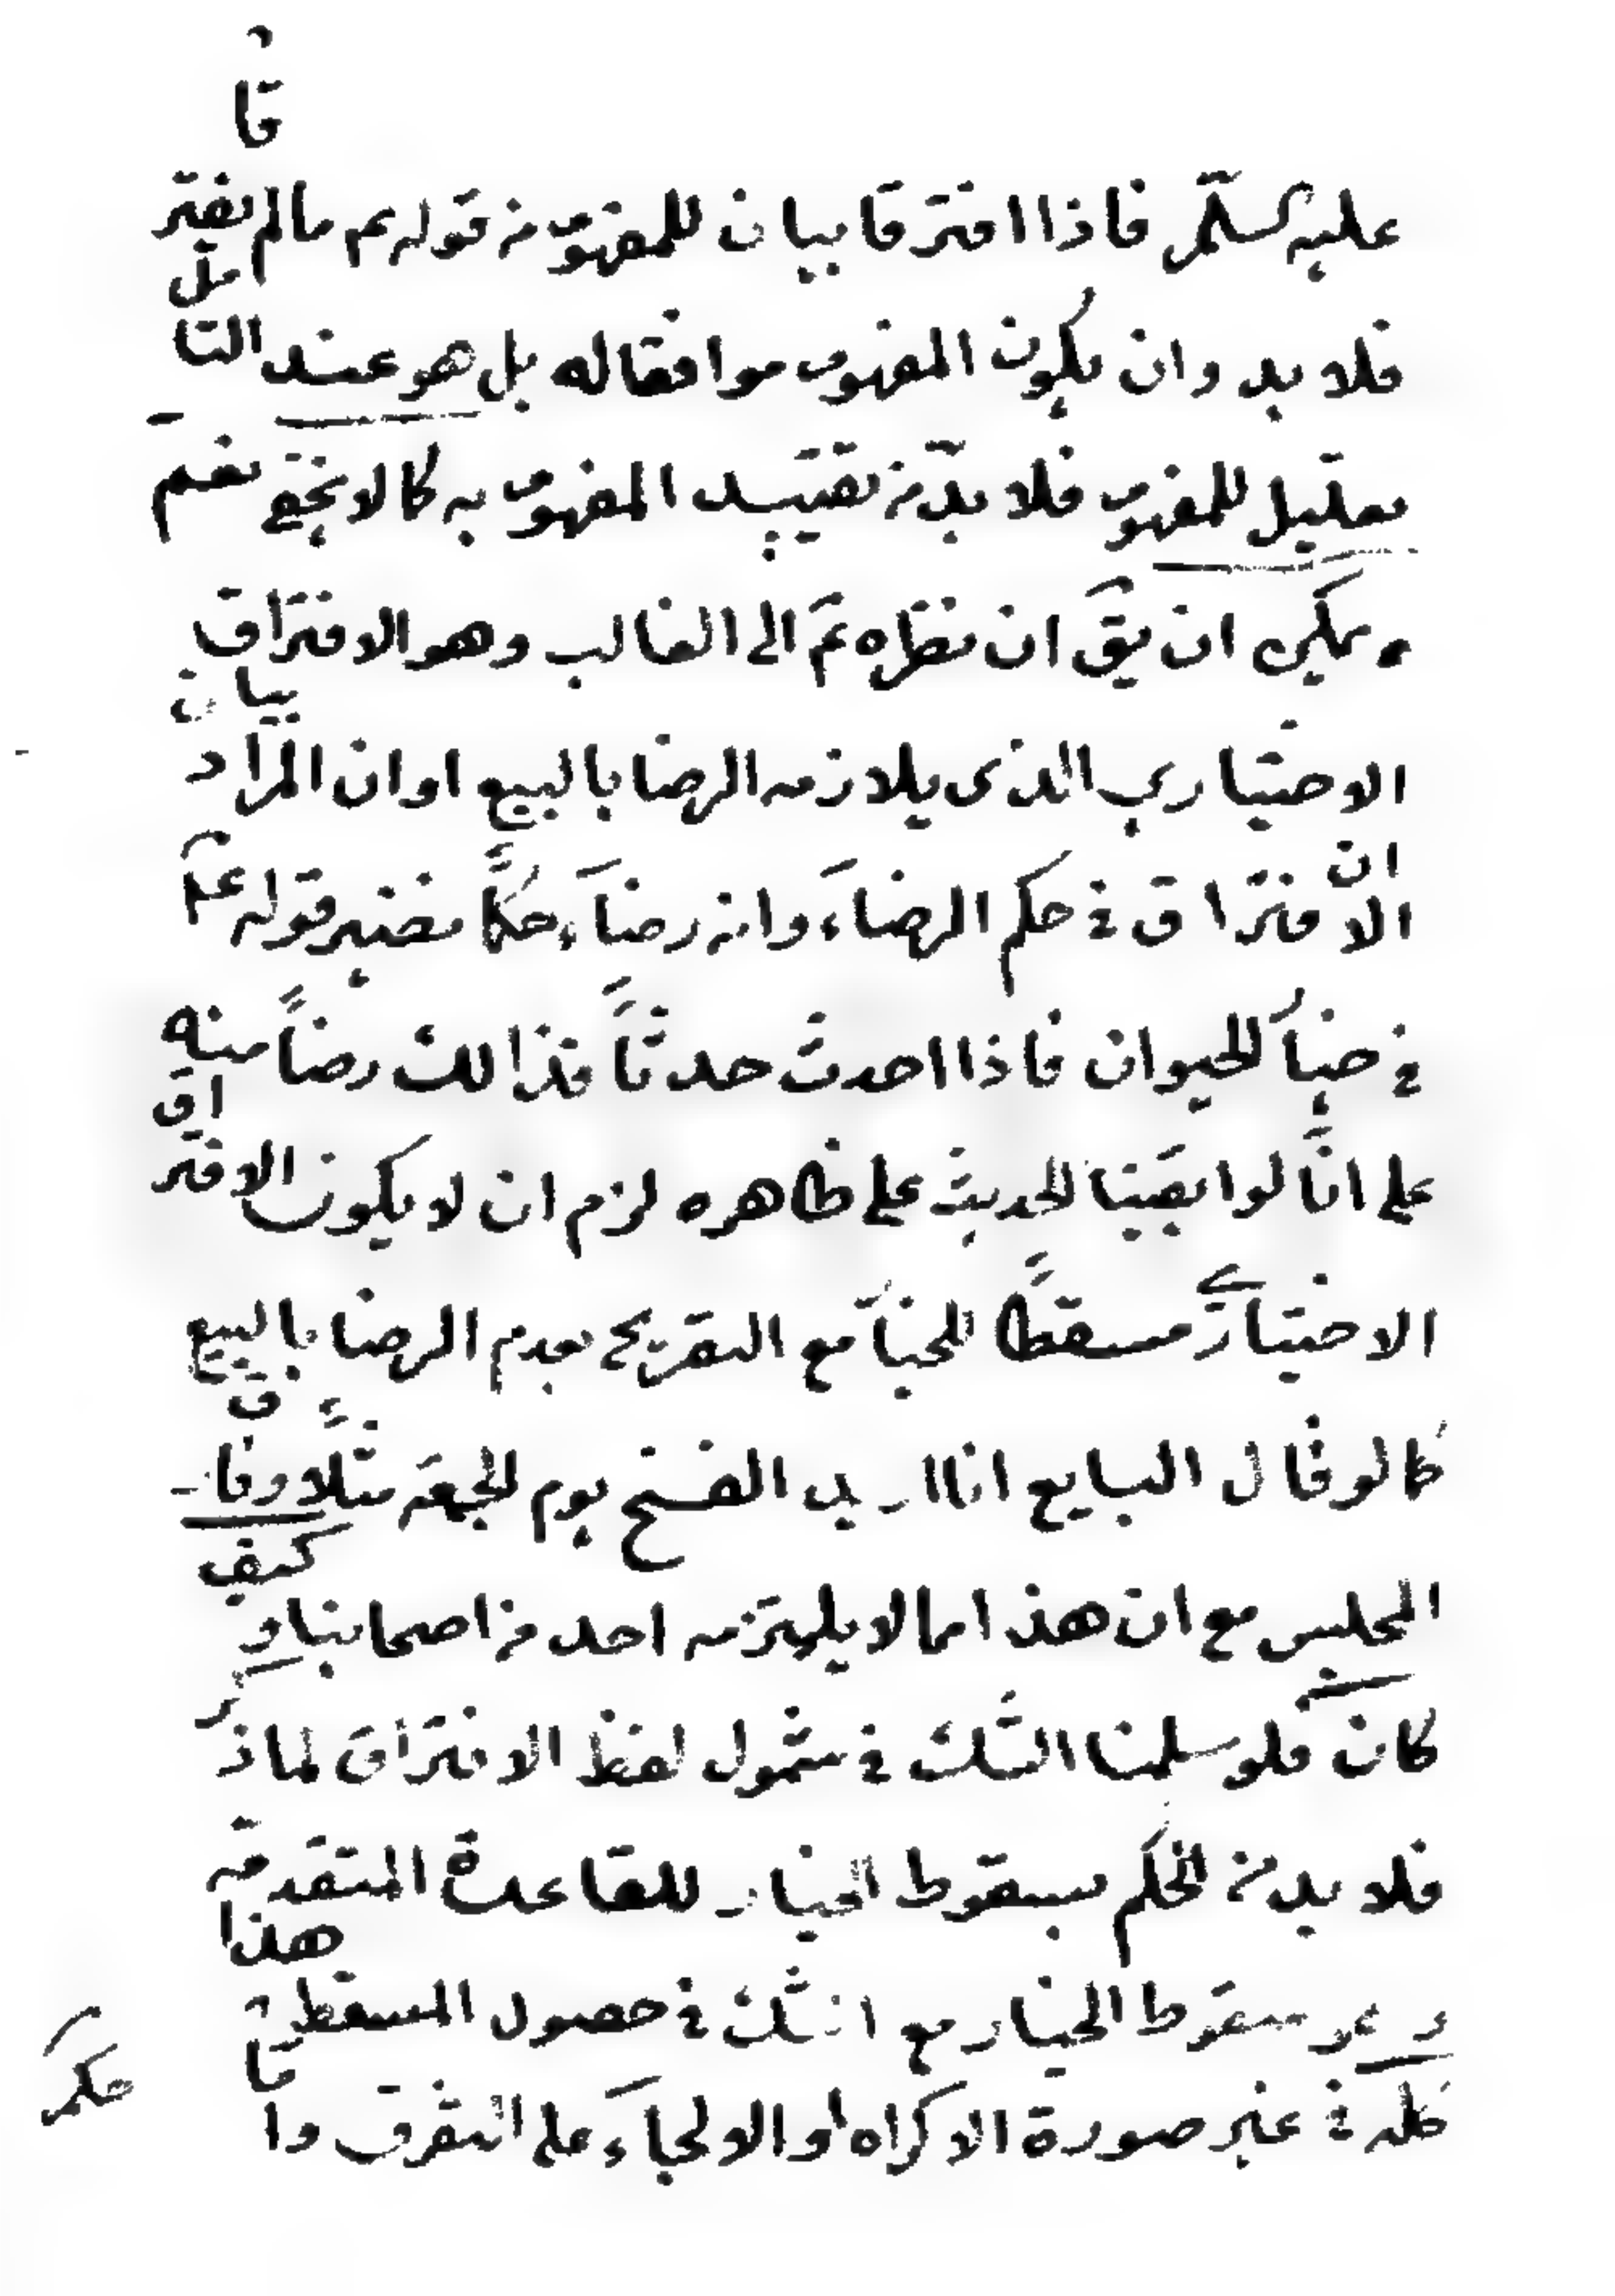 عليه السلم فاذا افترقا بيان للمفهوم من قوله عم مالم يفترقا
فلا بد وان يكون المفهوم موافقا له بل هو عند التامل
تعليل للمفهوم فلا بد من تقييد المفهوم به كما لا يخفى نعم
يمكن ان يق ان نظره ثم الى الغالب وهو الافتراق
الاختياري الذى يلازمه الرضا بالبيع او ان المراد بيان
ان الافتراق في حكم الرضاء وانه رضاء حكما نظير قوله عم
في خيار الحيوان فاذا احدث حدثا فذالك رضا منه
على انا لو ابقينا الحديث على ظاهره لزم ان لا يكون الافتراق
الاختياري مسقطا للخيار مع التصريح بعدم الرضا بالبيع
كما لو قال البايع انا اريد الفسخ يوم الجمعة مثلا وفارق
المجلس مع ان هذا مما لا يلتزمه احد من اصحابنا وكيف
كان فلو سلمنا الشك في شمول لفظ الافتراق لما ذكر
فلا بد من الحكم بسقوط الخيار للقاعدة المتقدمة
سقوط الخيار مع الشك في حصول المسقط هذا
كله في غير صورة الاكراه او الالجاء على التفرق واما
حكم